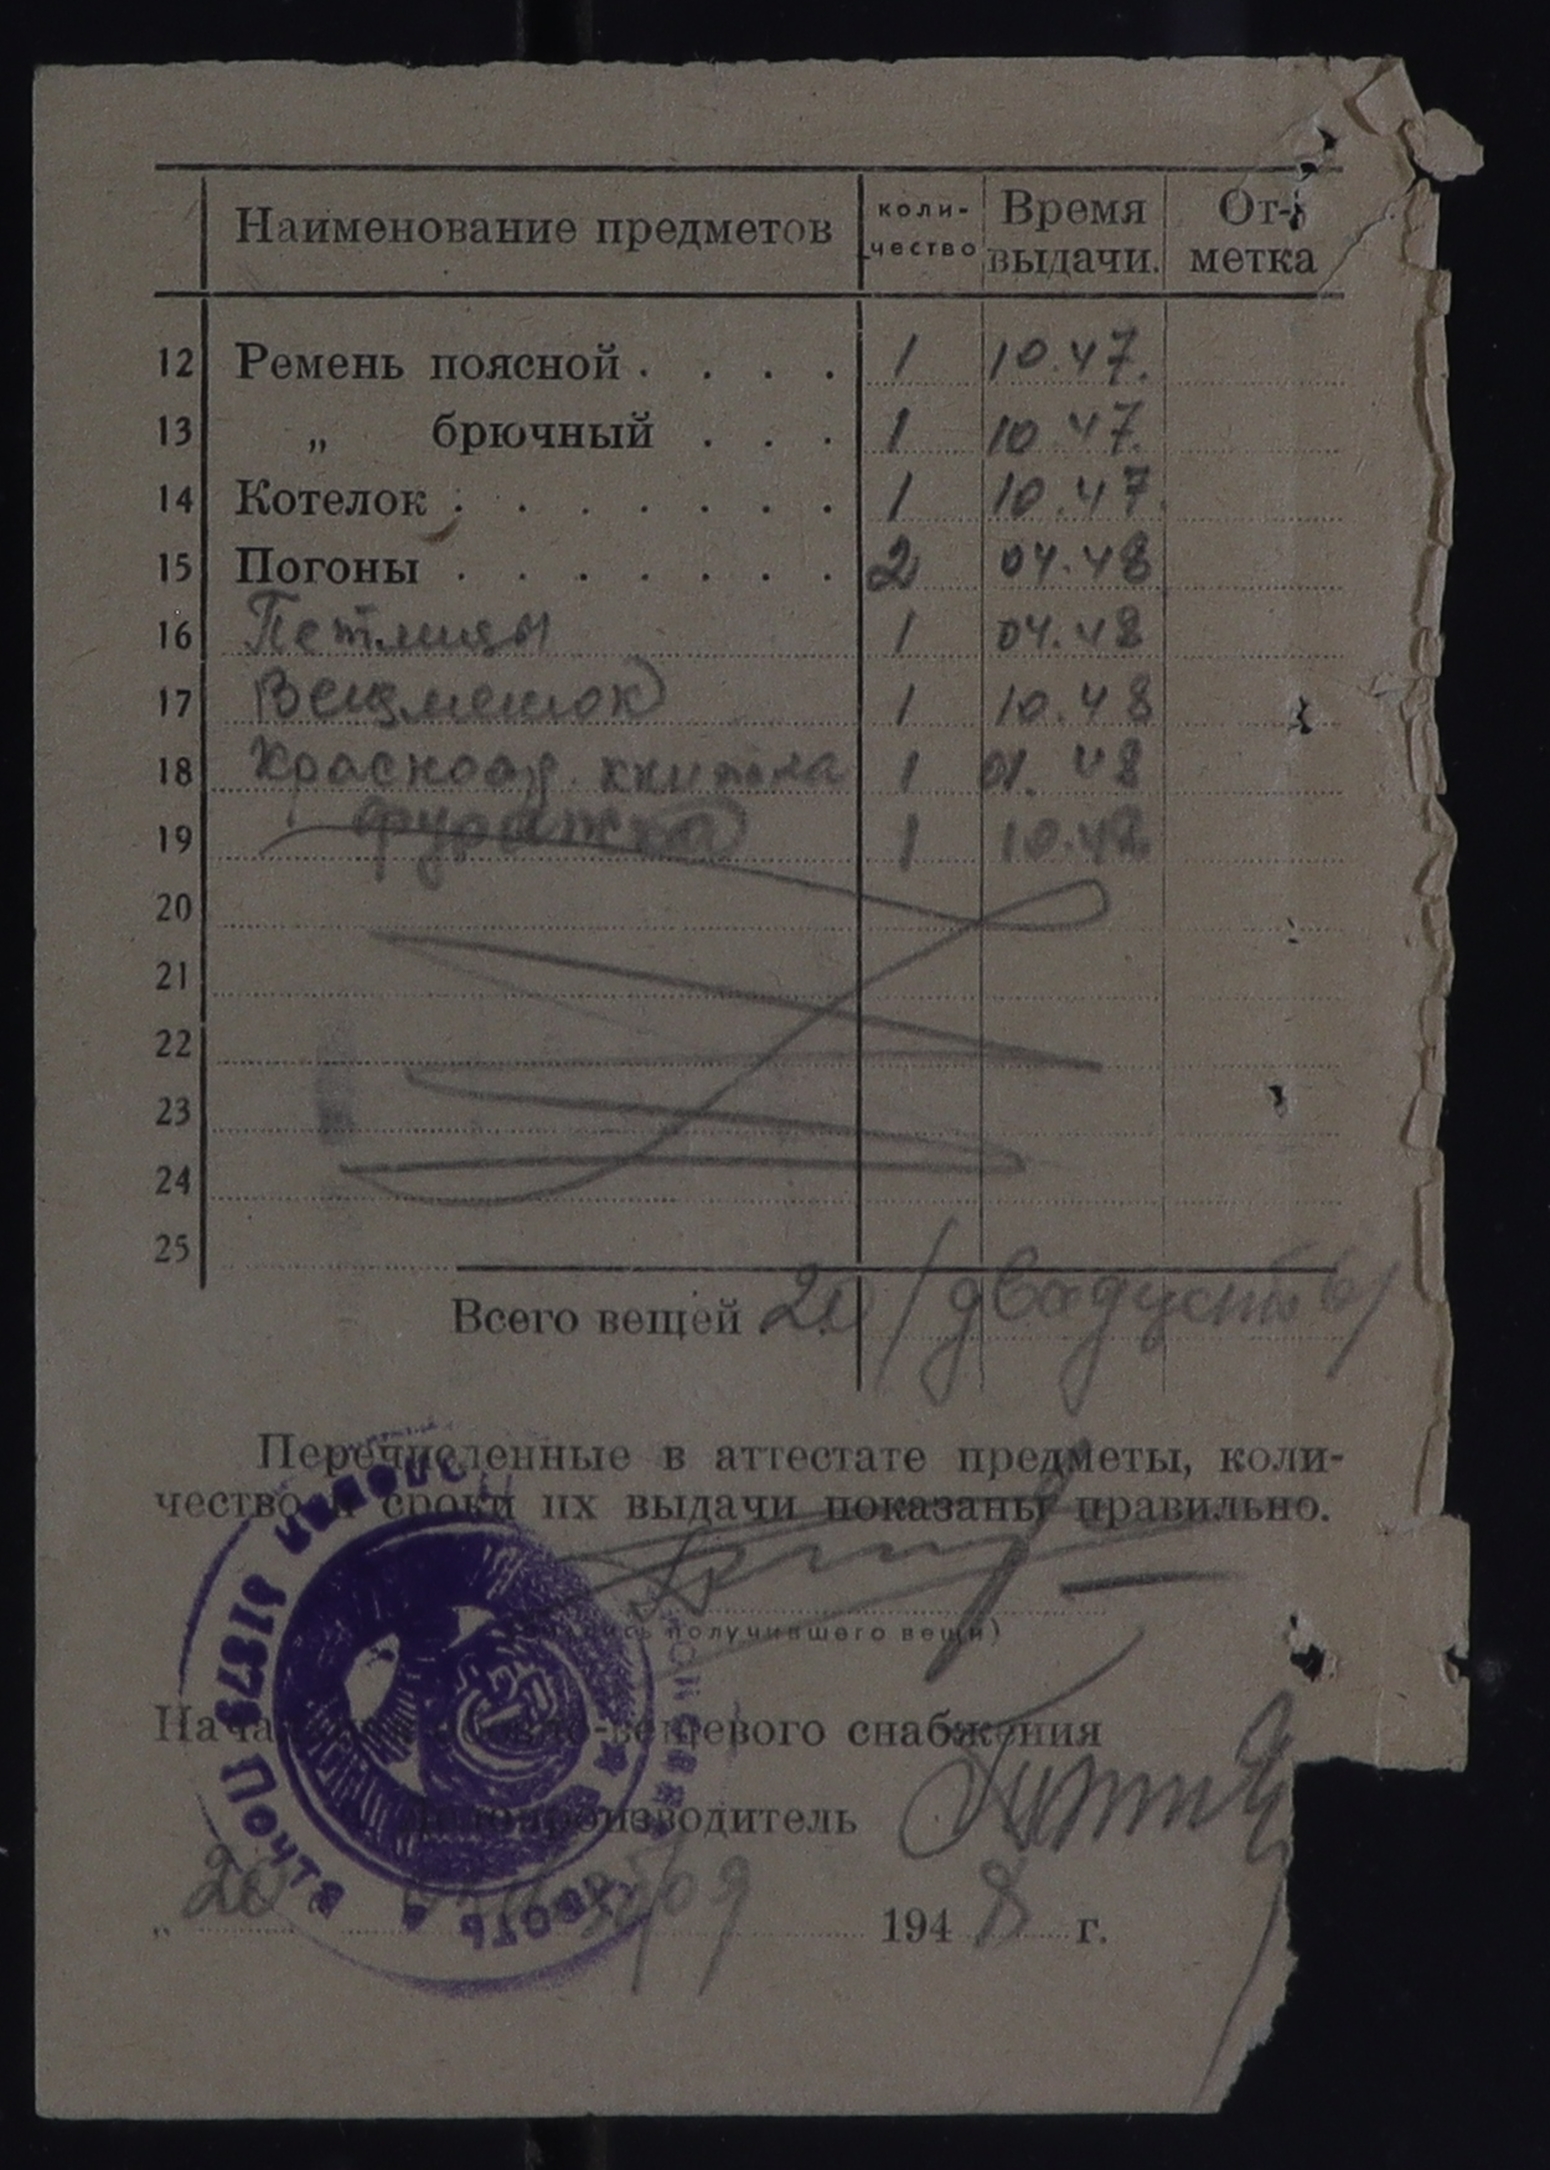 Наименование предметов коли-чество Время выдачи. От-метка
12 Ремень поясной . . . . 1 10.47.
13 „ брючный . . . 1 10.47.
14 Котелок . . . . . . . 1 10.47.
15 Погоны . . . . . . . 2 04.48
16 Петлицы 1 04.48
17 Вещмешок 1 10.48
18 Красноар. книжка 1 01.48
19 фуражка 1 10.48
20
21
22
23
24
25
Всего вещей 20 /двадцать/
Перечисленные в аттестате предметы, коли-
чество и сроки их выдачи показаны правильно.
получившего вещи)
снабжения
Делопроизводитель
„ 20 194 8 г.
Полевая Почта